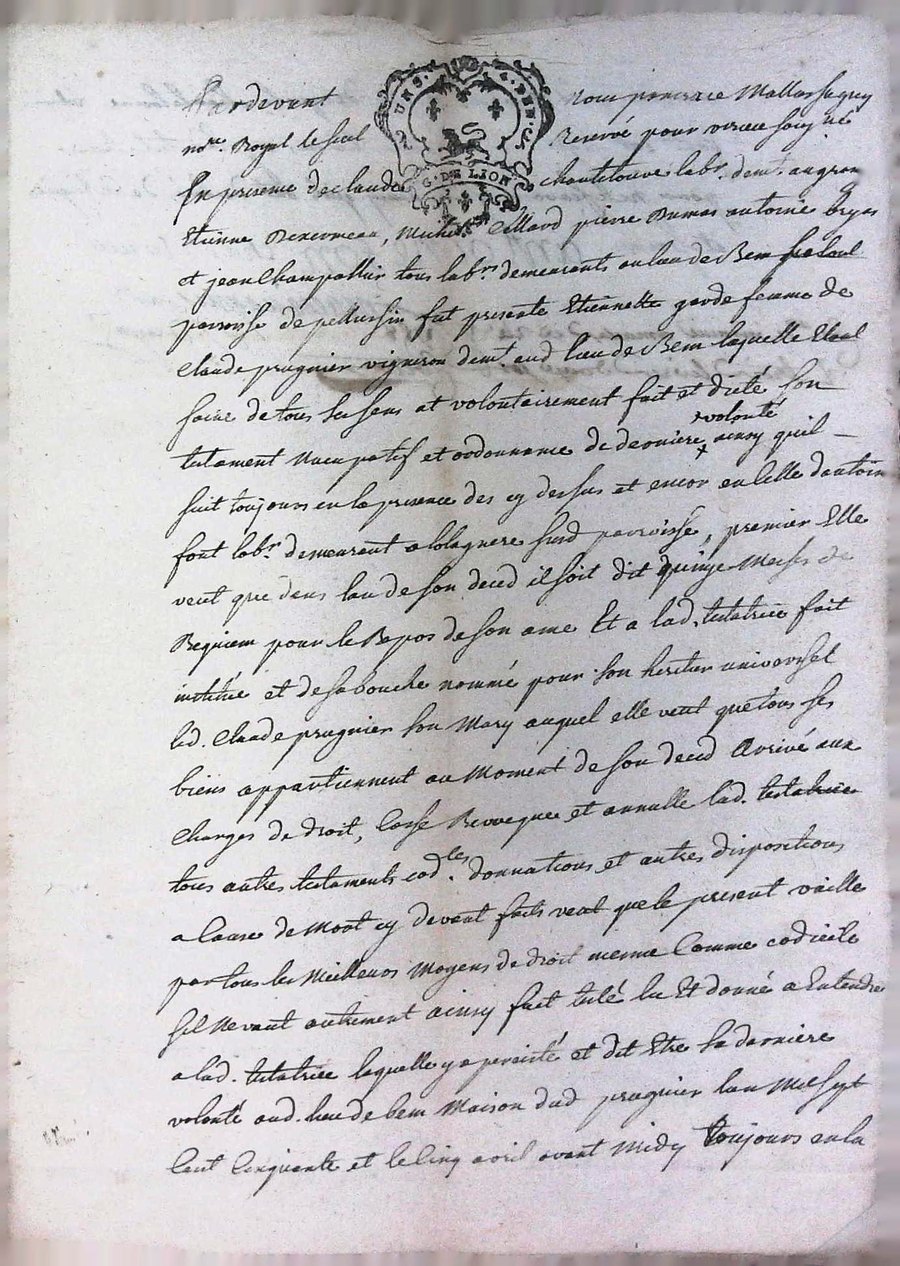 UN S. 4. DEN.
G. DE LION
Pardevant nous
no.re Royal le seel Reservé pour
En presence de claude chantelouve lab.r dem.t au gran
Etienne michel pierre Dumas antoine
et jean Champallier tous lab.rs demeurants au lieu de Bem
parroisse de pellussin fut presente Etiennette garde femme de
Claude prugnier vigneron dem.t aud lieu de Bem laquelle Etant
saine de tous ses sens et volontairement fait et dicté son
volonté
testament nuncupatif et ordonnance de derniere x ainsy quil
suit toujours en la presence des cy dessus et encor en celle dantoin
font lab.r demeurant a susd parroisse, premier Elle
veut que dans lan de son deced il soit dit quinze Messes de
Requiem pour le Repos de son ame Et a lad. testatrice fait
institué et de sa bouche nommé pour son heritier universel
led. Claude prugnier son Mary auquel elle veut que tous ses
biens appartiennent au Moment de son deced Arrivé aux
Charges de droit, Casse Revoque et annulle lad. testatrice
tous autres testaments cod.les donnations et autres dispositions
a Cause de Mort cy devant faits veut que le present vaille
par tous les Meilleurs Moyens de droit meme Comme codicile
sil ne vaut autrement ainsy fait lu Et donné a Entendre
a lad. testatrice laquelle y a persisté et dit Etre sa derniere
volonté aud. lieu de bem Maison dud prugnier lan Mil sept
Cent Cinquante et le Cinq avril avant Midy toujours en la